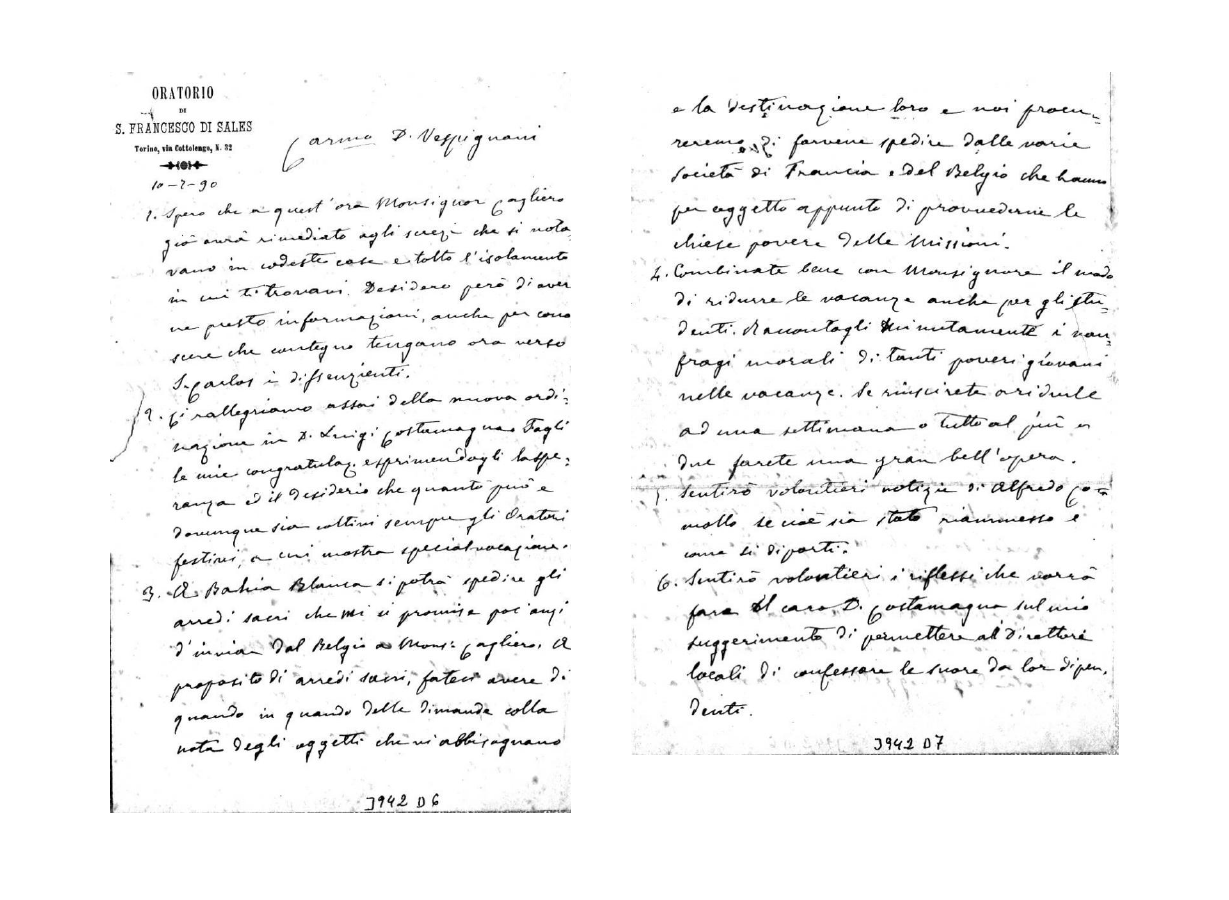 ORATORIO
DI
S. FRANCESCO DI SALES
Torino, via Cottolengo, N. 32
Carmo D. Vespignani
10-2-90
1. Spero che a quest'ora Monsignor Cagliero
già avrà rimediato agli screzi che si nota
vano in codeste case e tolto l'isolamento
in cui ti trovavi. Desidero però di aver
ne presto informazioni, anche per cono
scere che contegno tengano ora verso
S. Carlos i dissenzienti.
2. Ci rallegriamo assai della nuova ordi=
nazione in D. Luigi Costamagna. Fagli
le mie congratulaz. esprimendogli la spe=
ranza ed il desiderio che quanto può e
dovunque sia coltivi sempre gli Oratori
festivi, a cui mostra special vocazione.
3. A Bahia Blanca si potrà spedire gli
arredi sacri che mi si promise poc'anzi
d'inviar dal Belgio a Mons: Cagliero. A
proposito di arredi sacri, fateci avere di
quando in quando delle dimande colla
nota degli oggetti che vi abbisognano
J942 D6
e la destinazione loro e noi procu=
reremo di farvene spedire dalle varie
società di Francia e del Belgio che hanno
per oggetto appunto di provvederne le
chiese povere delle Missioni.
4. Combinate bene con Monsignore il modo
di ridurre le vacanze anche per gli stu
denti. Raccontagli minutamente i nau=
fragi morali di tanti poveri giovani
nelle vacanze. Se riuscirete a ridurle
ad una settimana o tutto al più a
due farete una gran bell'opera.
5. Sentirò volontieri notizie di Alfredo
molto se cioè sia stato riammesso e
come si diporti.
6. Sentirò volontieri i riflessi che vorrà
fare il caro D. Costamagna sul mio
suggerimento di permettere ai Direttori
locali di confessare le suore da lor dipen,
denti.
J942 D7